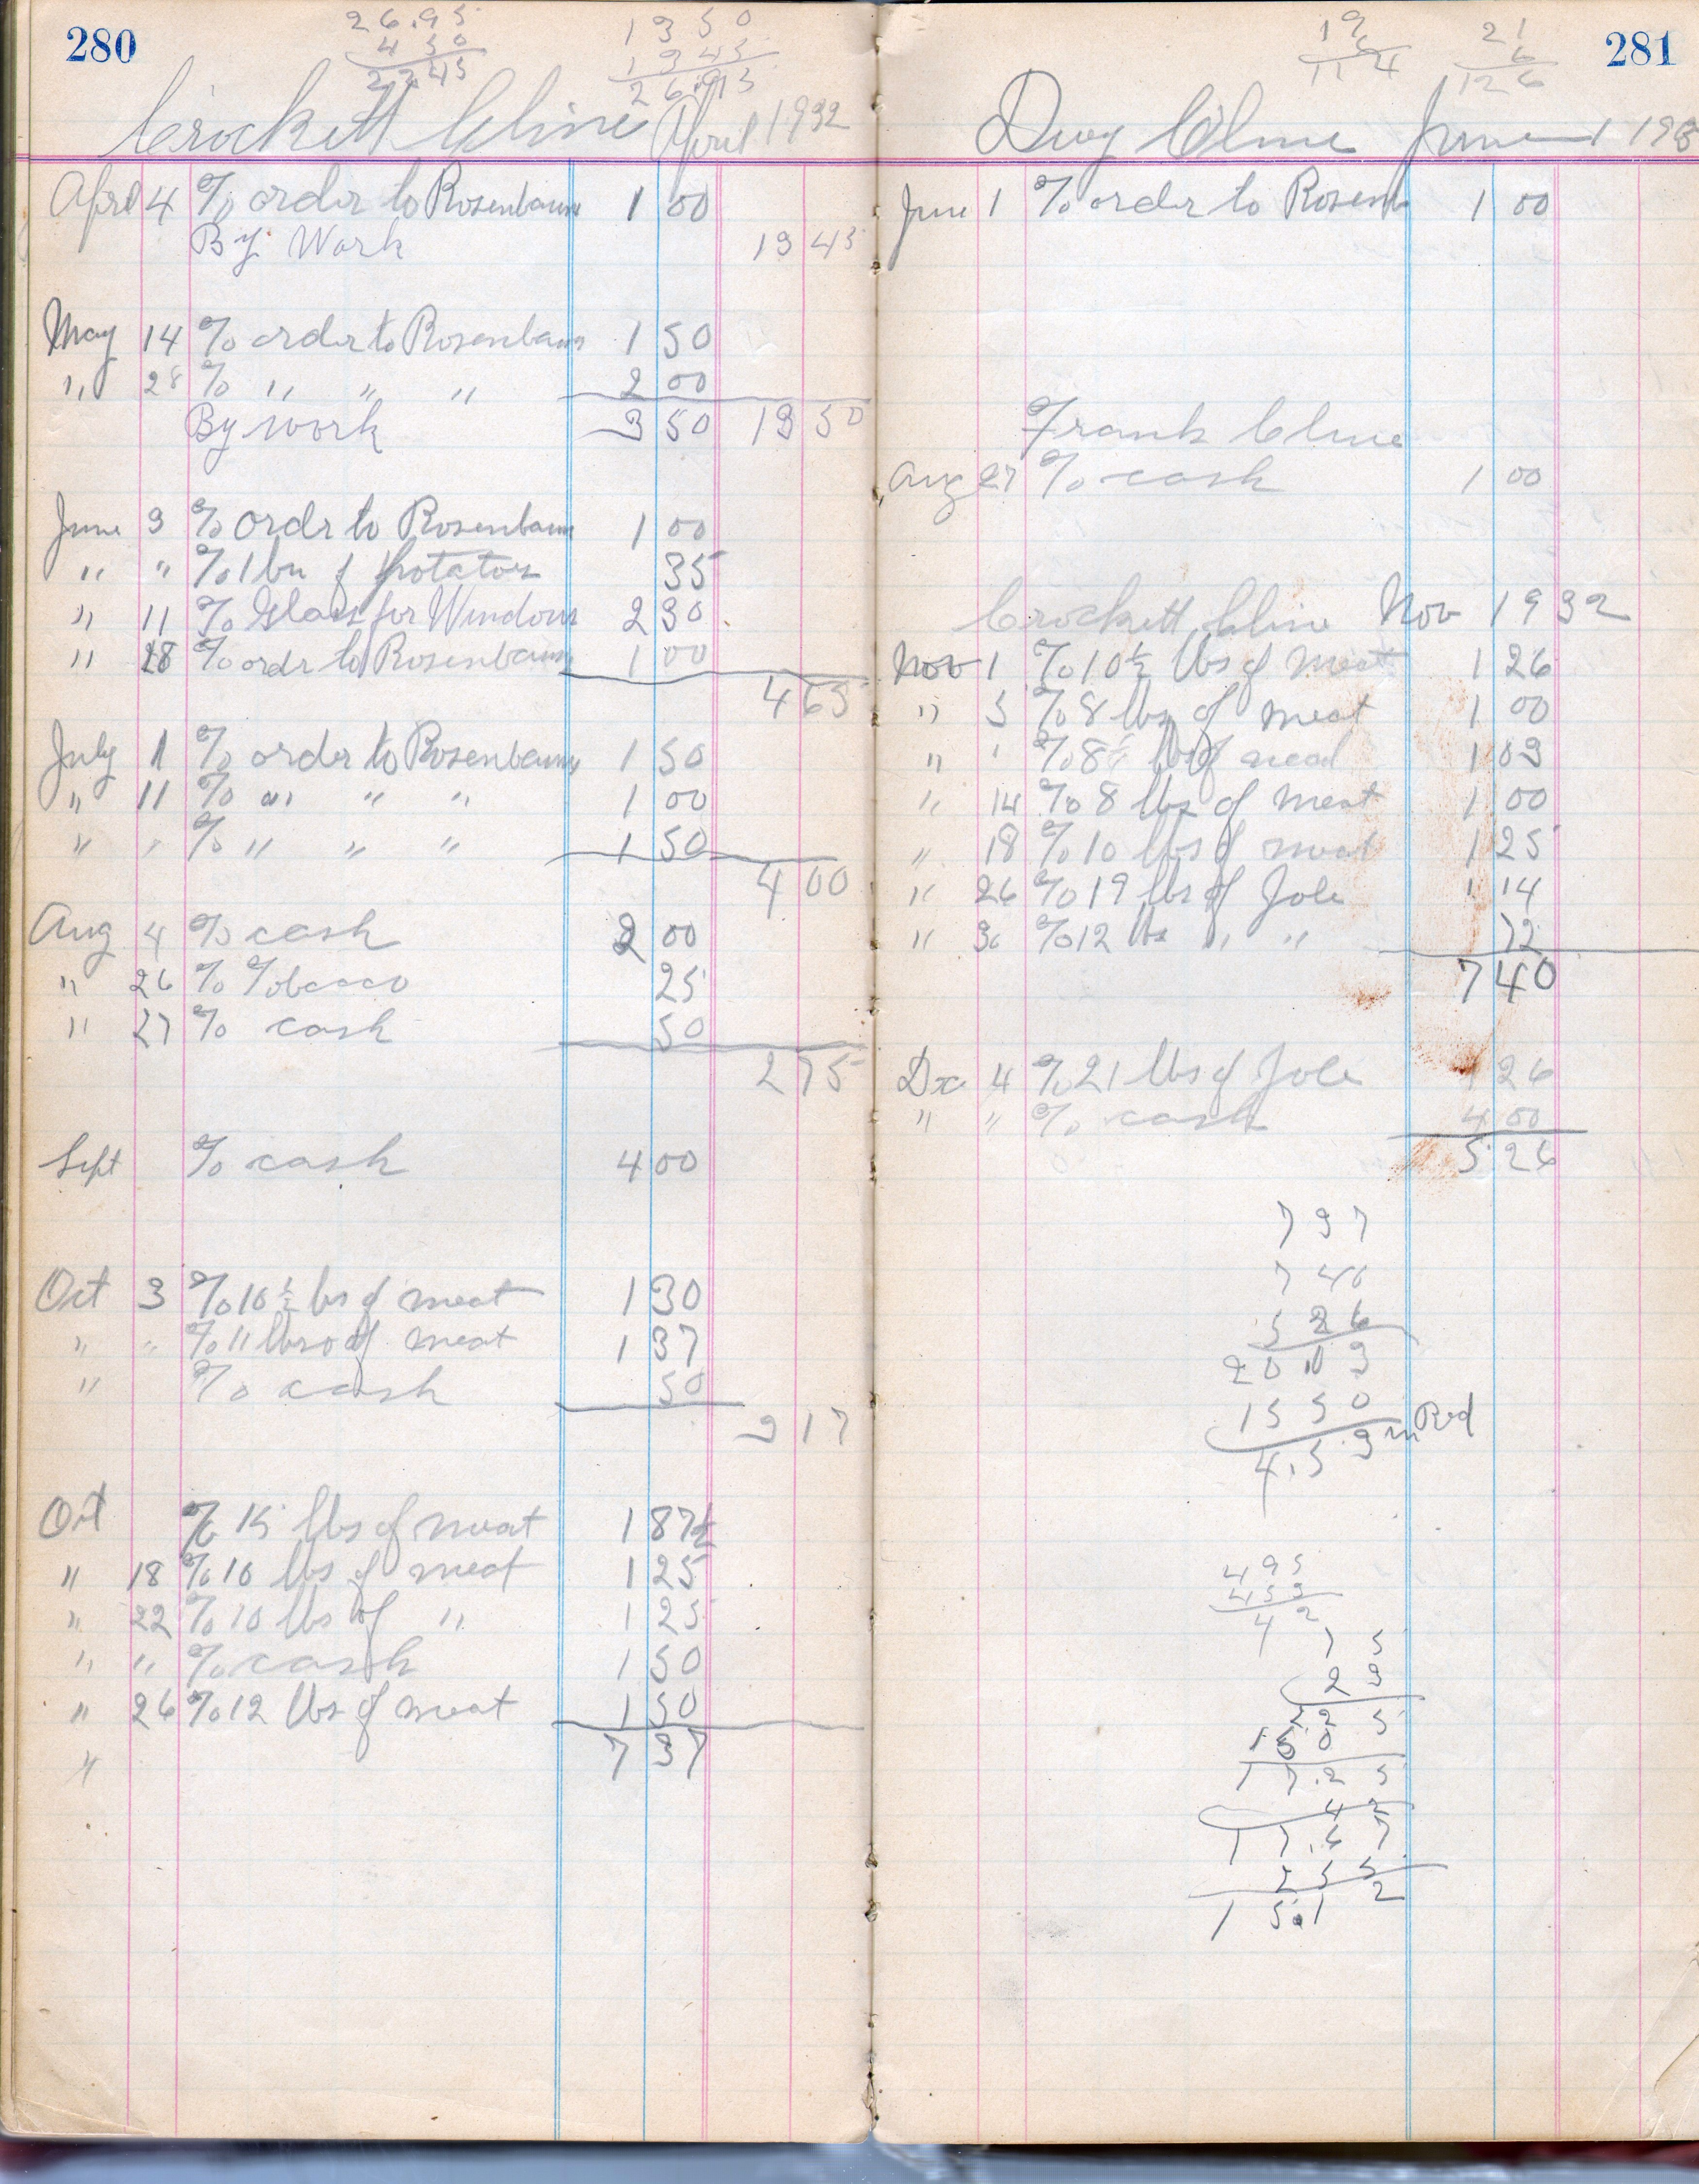 280
26.95
4 50
22 45
13 50
13 45
26.95
Crockett Cline April 1932
April 4 % order to Rosenbaum 1 00
By Work 13 45
May 14 % order to Rosenbaum 1 50
" 28 % " " " 2 00
By work 3 50 13 50
June 3 % ordr to Rosenbaum 1 00
" " % 1 bu of Potatoes 35
" 11 % Glass for Windows 2 30
" 28 % ordr to Rosenbaum 1 00
4 65
July 1 % order to Rosenbaum 1 50
" 11 % " " " 1 00
" " % " " " 1 50
4 00
Aug 4 % cash 2 00
" 26 % Tobacco 25
" 27 % cash 50
2 75
Sept % cash 4 00
Oct 3 % 10 1/2 lbs of meat 1 30
" " % 11 lbs of meat 1 37
" % cash 50
3 17
Oct % 15 lbs of meat 1 87 1/2
" 18 % 10 lbs of meat 1 25
" 22 % 10 lbs of " 1 25
" " % cash 1 50
" 26 % 12 lbs of meat 1 50
" 7 37
281
19
6
11 4
21
6
12 6
Dug Cline June 1 193
June 1 % order to Rosenb 1 00
Frank Cline
Aug 27 % cash 1 00
Crockett Cline Nov 1932
Nov 1 % 10 1/2 lbs of meat 1 26
" 5 % 8 lbs of meat 1 00
" " % 8 lbs of meat 1 03
" 14 % 8 lbs of meat 1 00
" 18 % 10 lbs of meat 1 25
" 26 % 19 lbs of Jole 1 14
" 30 % 12 lbs " " 72
7 40
Dec 4 % 21 lbs of Jole 1 26
" " % cash 4 00
5 26
7 37
7 40
5 26
20 03
15 50
4.53 in Red
4 95
4 53
4 2
7 5
2 3
2 2 5
15 0 5
1 7.2 5
4 2
1 7.6 7
2 5 5
1 5.1 2